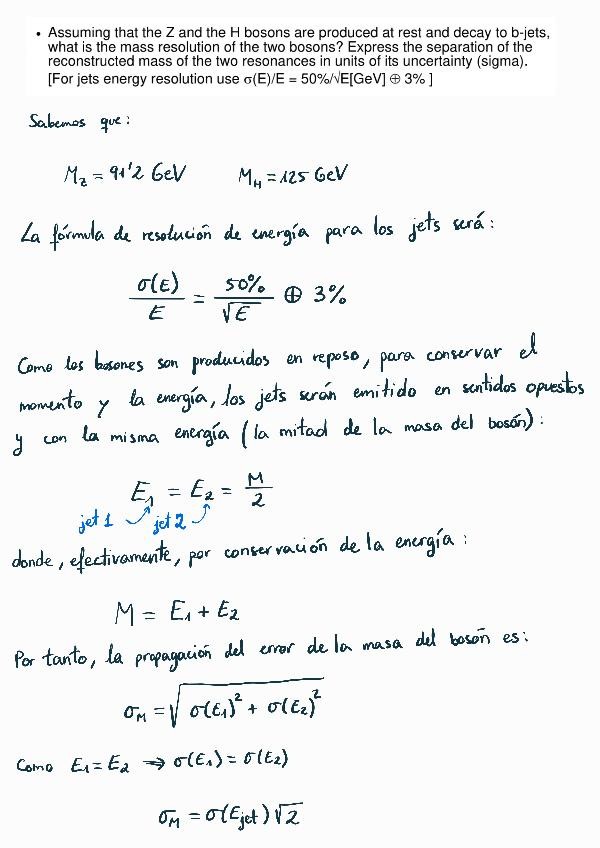 • Assuming that the Z and the H bosons are produced at rest and decay to b-jets,
what is the mass resolution of the two bosons? Express the separation of the
reconstructed mass of the two resonances in units of its uncertainty (sigma).
[For jets energy resolution use σ(E)/E = 50%/√E[GeV] ⊕ 3% ]
Sabemos que:
M_Z = 91'2 GeV M_H = 125 GeV
La fórmula de resolución de energía para los jets será:
σ(E)/E = 50%/√E ⊕ 3%
Como los bosones son producidos en reposo, para conservar el
momento y la energía, los jets serán emitido en sentidos opuestos
y con la misma energía (la mitad de la masa del bosón):
E₁ = E₂ = M/2
jet 1 jet 2
donde, efectivamente, por conservación de la energía:
M = E₁ + E₂
Por tanto, la propagación del error de la masa del bosón es:
σ_M = √(σ(E₁)² + σ(E₂)²)
Como E₁ = E₂ → σ(E₁) = σ(E₂)
σ_M = σ(E_jet) √2